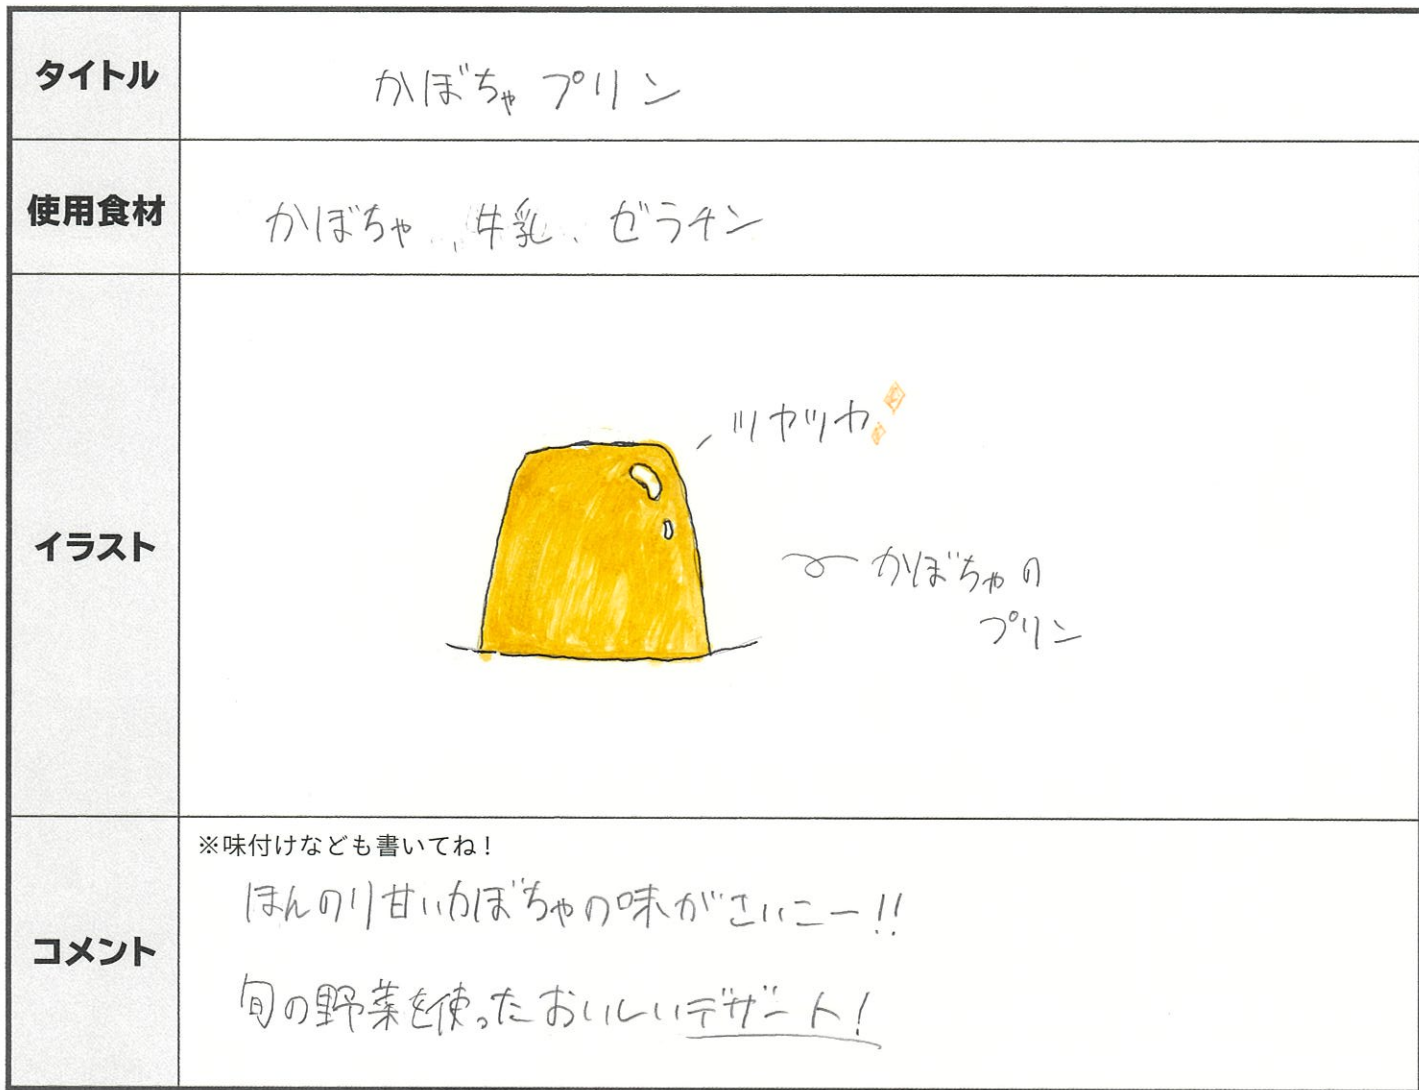 タイトル
かぼちゃプリン
使用食材
かぼちゃ、牛乳、ゼラチン
イラスト
ツヤツヤ
かぼちゃの
プリン
コメント
※味付けなども書いてね！
ほんのり甘いかぼちゃの味がさいこー!!
旬の野菜を使ったおいしいデザート!